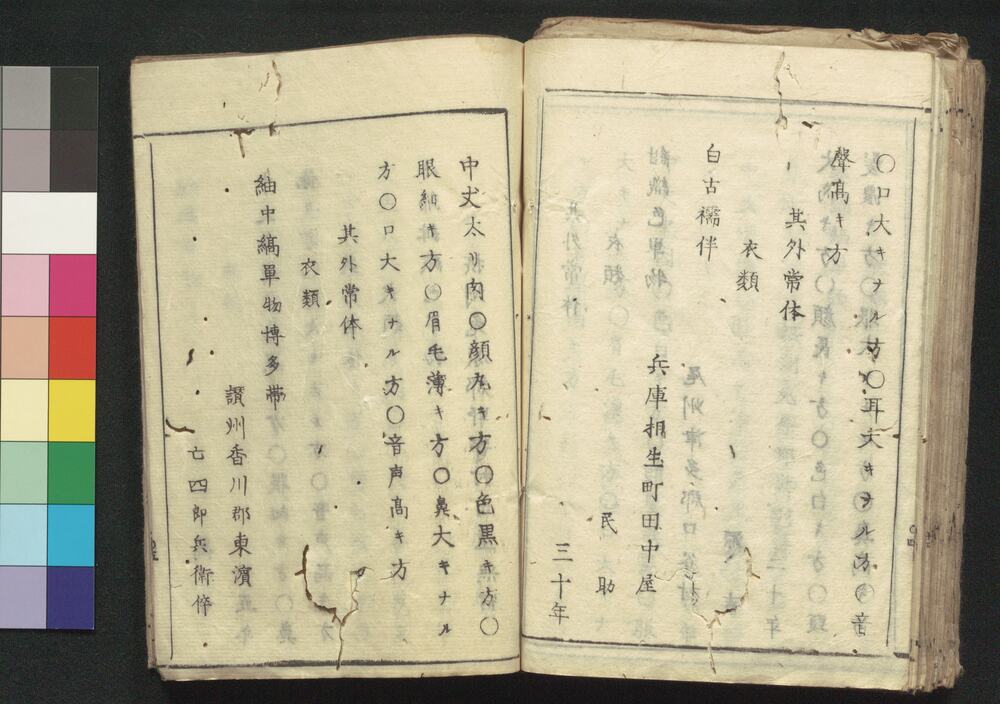 〇口大キナル方〇耳大キナル方〇音
聲高キ方
其外常体
衣類
白古襦伴
兵庫相生町田中屋
民助
三十年
中丈太リ肉〇顔丸キ方〇色黒キ方〇
眼細キ方〇眉毛薄キ方〇鼻大キナル
方〇口大キナル方〇音声高キ方
其外常体
衣類
紬中縞單物博多帯
讃州香川郡東濱
亡四郎兵衛倅